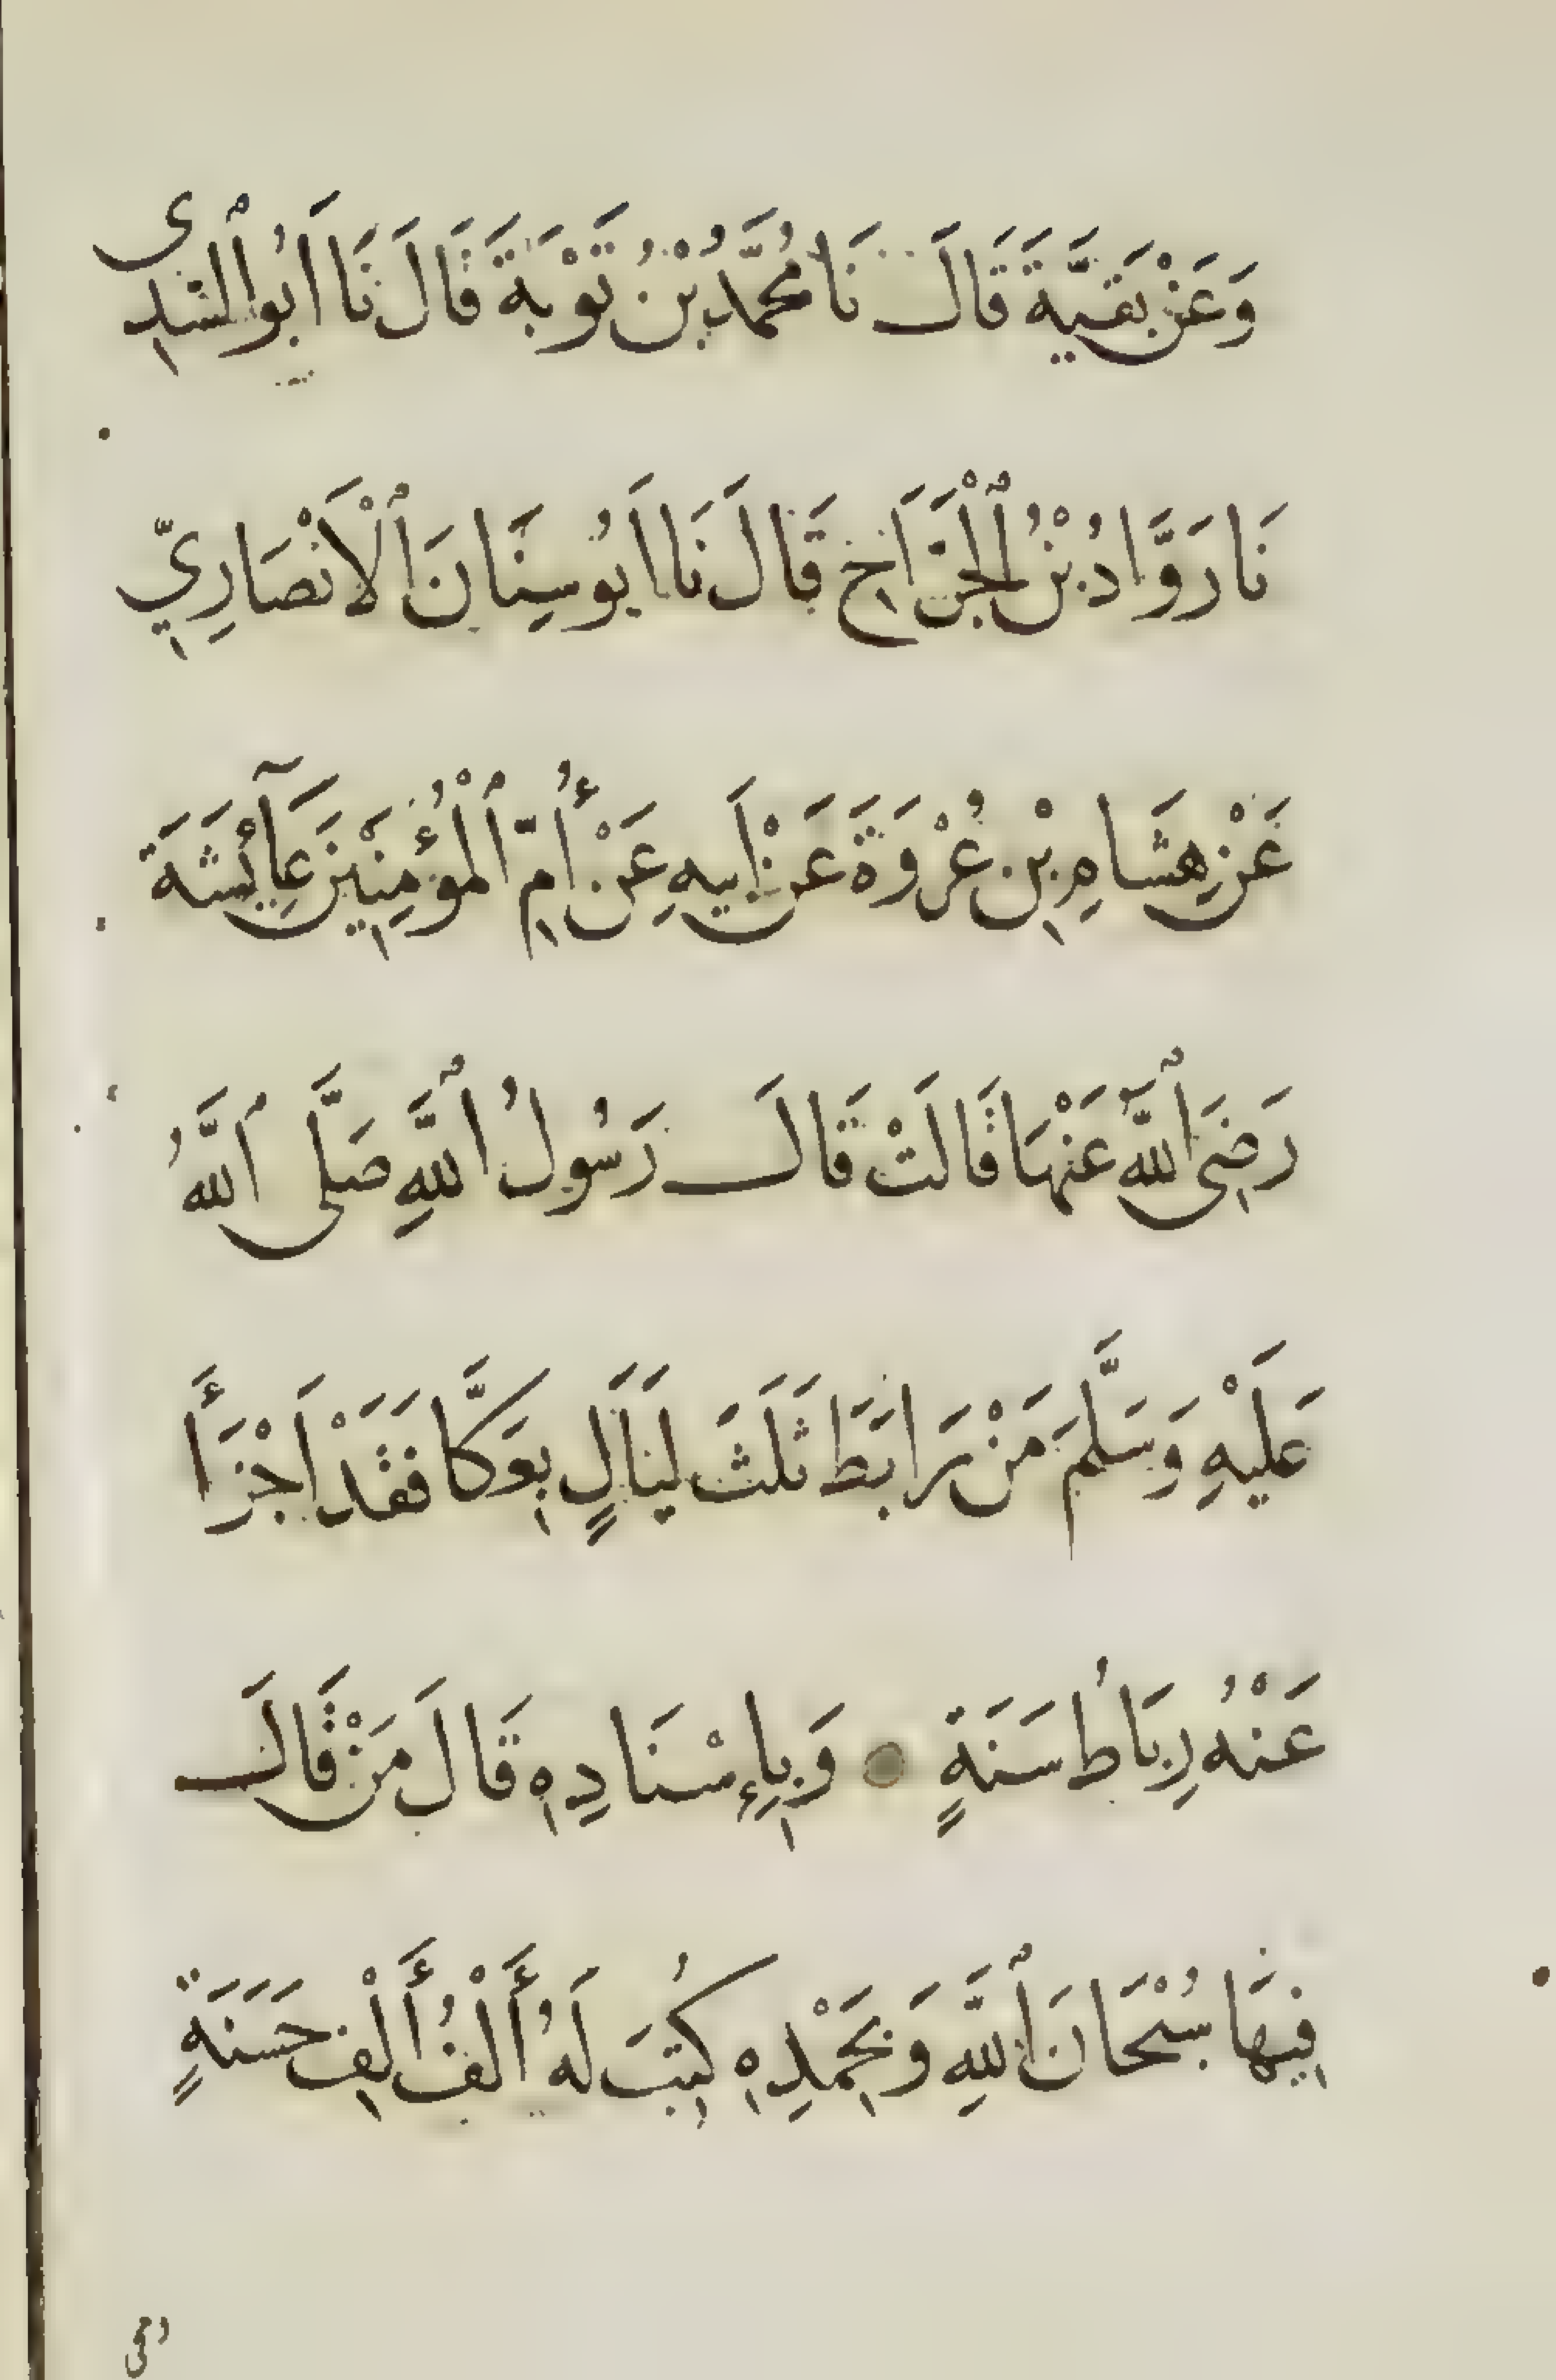 وَعَنْ بَقِيَّةَ قَالَ نَا مُحَمَّدُ بْنُ تَوْبَةَ قَالَ نَا أَبُو الشَّدِى
نَا رَوَّادُ بْنُ ٱلْجَرَّاحِ قَالَ نَا اَبُو سِنَانَ ٱلْاَنْصَارِيِّ
عَنْ هِشَامِ بْنِ عُرْوَةَ عَنْ اَبِيهِ عَنْ أُمِّ ٱلْمُؤْمِنِينَ عَآئِشَةَ
رَضِيَ ٱللَّهُ عَنْهَا قَالَتْ قَالَ رَسُولُ ٱللَّهِ صَلَّى ٱللَّهُ
عَلَيْهِ وَسَلَّمَ مَنْ رَابَطَ ثَلَثَ لَيَالٍ بِعَكَّا فَقَدْ اَجْزَأَ
عَنْهُ رِبَاطُ سَنَةٍ وَبِإِسْنَادِهِ قَالَ مَنْ قَالَ
فِيهَا سُبْحَانَ ٱللَّهِ وَبِحَمْدِهِ كُتِبَ لَهُ أَلْفُ أَلْفِ حَسَنَةٍ